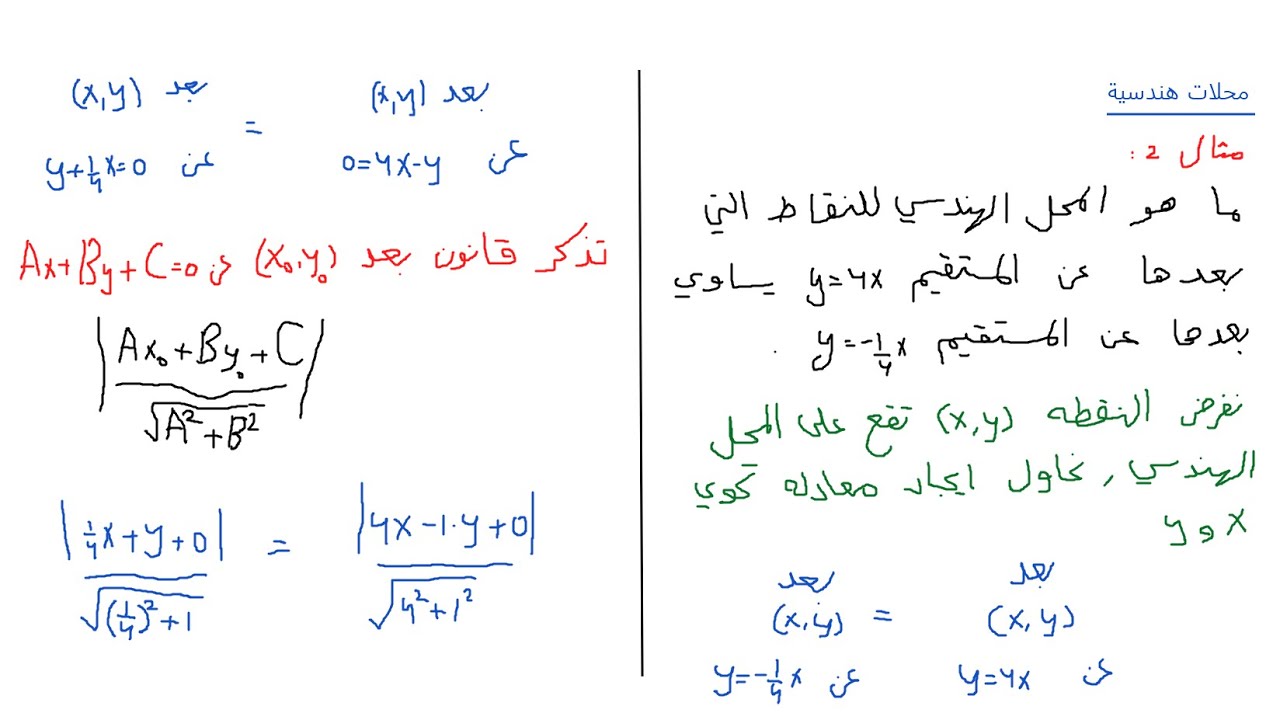 محلات هندسية
مثال 2 :
ما هو المحل الهندسي للنقاط التي
بعدها عن المستقيم y=4x يساوي
بعدها عن المستقيم y=-1/4 x .
نفرض النقطه (x,y) تقع على المحل
الهندسي , نحاول ايجاد معادله تحوي
x و y
بعد (x,y) = بعد (x,y)
عن y=4x عن y=-1/4 x
بعد (x,y) = بعد (x,y)
عن 0=4x-y عن y+1/4 x=0
تذكر قانون بعد (x₀,y₀) عن Ax+By+C=0
|Ax₀+By₀+C / √A²+B²|
|4x-1·y+0| / √4²+1² = |1/4 x+y+0| / √(1/4)²+1